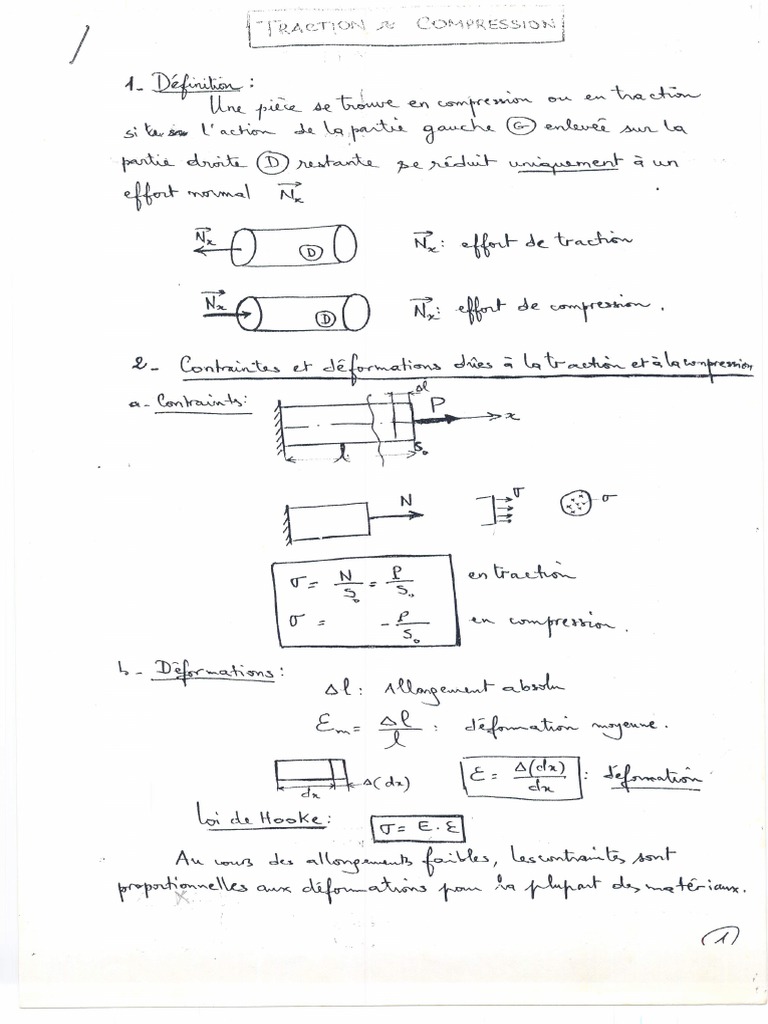 TRACTION & COMPRESSION
1- Définition :
Une pièce se trouve en compression ou en traction
si l'action de la partie gauche (G) enlevée sur la
partie droite (D) restante se réduit uniquement à un
effort normal N⃗x
N⃗x (D) N⃗x : effort de traction
N⃗x (D) N⃗x : effort de compression.
2- Contraintes et déformations dûes à la traction et à la compression
a- Contraints:
Δl
P
x
l S₀
N σ σ
σ = N/S₀ = P/S₀ en traction
σ = -P/S₀ en compression.
b- Déformations:
Δl : Allongement absolu
Ɛm = Δl/l : déformation moyenne.
dx Δ(dx) Ɛ = Δ(dx)/dx : déformation
Loi de Hooke: σ = E.Ɛ
Au cours des allongements faibles, les contraintes sont
proportionnelles aux déformations pour la plupart des matériaux.
(1)